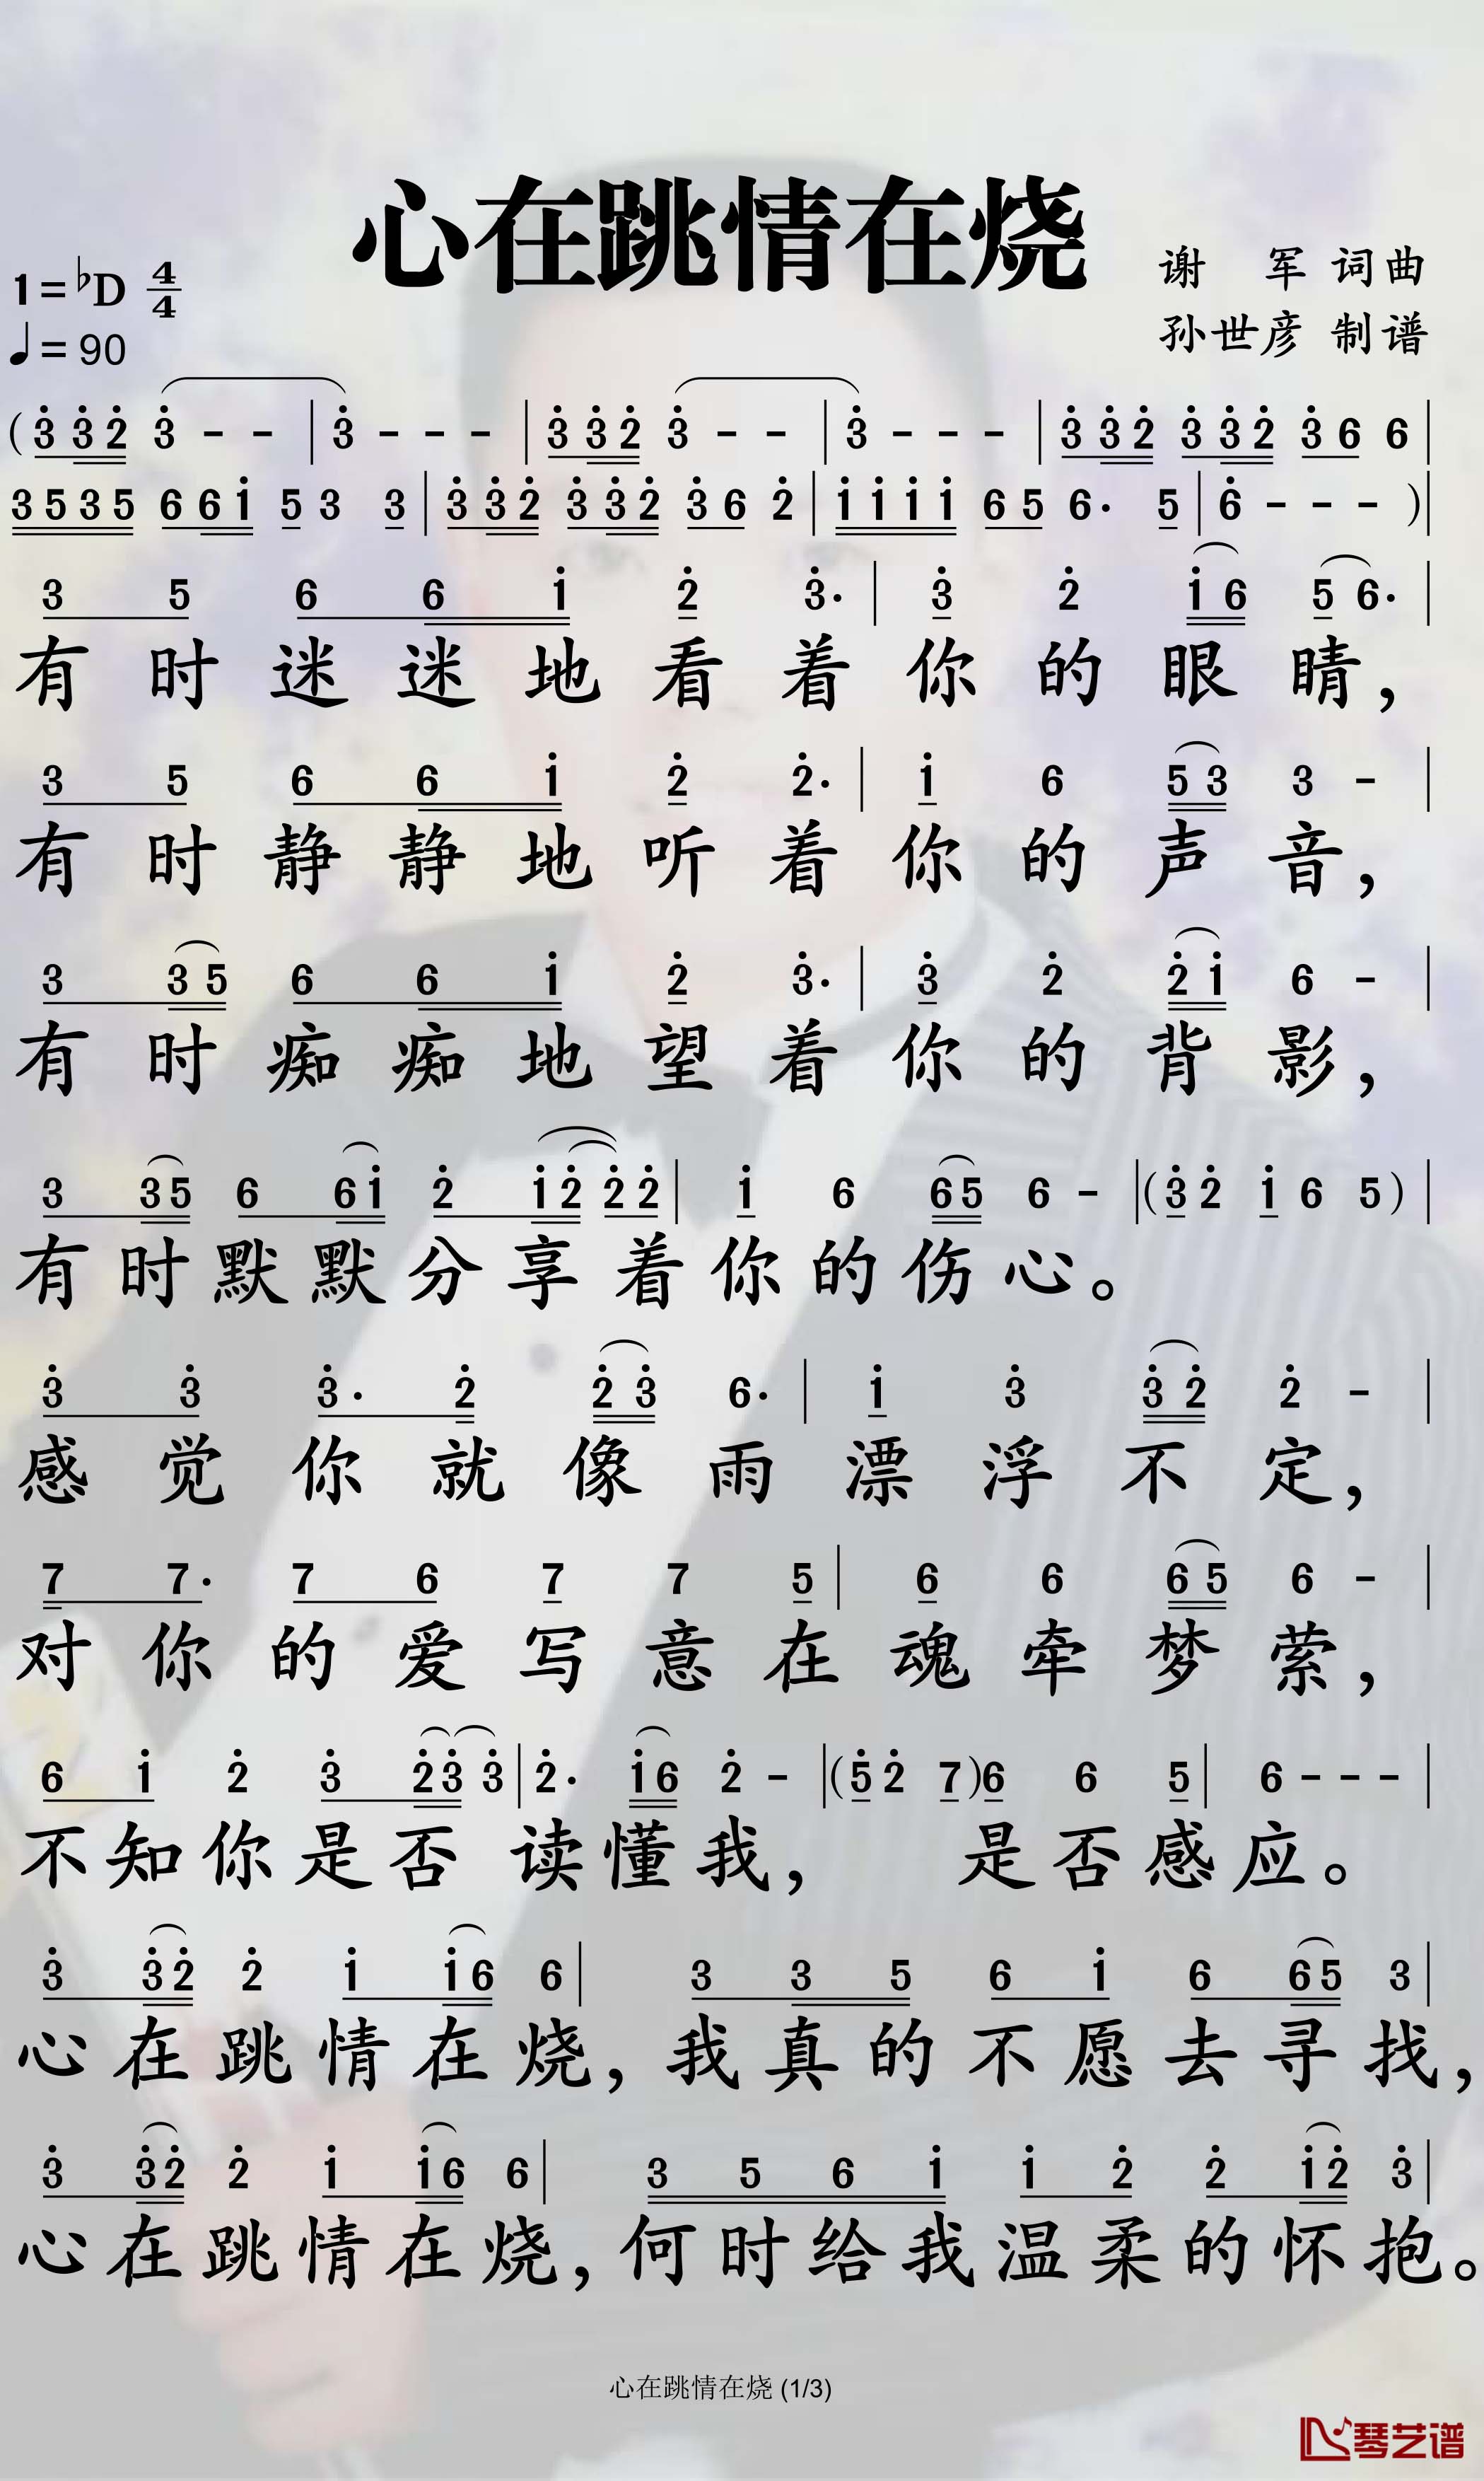 心在跳情在烧
1=♭D 4/4
谢 军 词曲
♩=90
孙世彦 制谱
(3̇ 3̇ 2̇ 3̇ - - | 3̇ - - - | 3̇ 3̇ 2̇ 3̇ - - | 3̇ - - - | 3̇ 3̇ 2̇ 3̇ 3̇ 2̇ 3̇ 6 6 |
3 5 3 5 6 6 1̇ 5 3 3 | 3̇ 3̇ 2̇ 3̇ 3̇ 2̇ 3̇ 6 2̇ | 1̇ 1̇ 1̇ 1̇ 6 5 6. 5 | 6̇ - - - ) |
3 5 6 6 1̇ 2̇ 3̇. | 3̇ 2̇ 1̇ 6 5 6. |
有时迷迷地看着你的眼睛，
3 5 6 6 1̇ 2̇ 2̇. | 1̇ 6 5 3 3 - |
有时静静地听着你的声音，
3 3 5 6 6 1̇ 2̇ 3̇. | 3̇ 2̇ 2̇ 1̇ 6 - |
有时痴痴地望着你的背影，
3 3 5 6 6 1̇ 2̇ 1̇ 2̇ 2̇ 2̇ | 1̇ 6 6 5 6 - | (3̇ 2̇ 1̇ 6 5 ) |
有时默默分享着你的伤心。
3̇ 3̇ 3̇. 2̇ 2̇ 3̇ 6. | 1̇ 3̇ 3̇ 2̇ 2̇ - |
感觉你就像雨漂浮不定，
7 7. 7 6 7 7 5 | 6 6 6 5 6 - |
对你的爱写意在魂牵梦萦，
6 1̇ 2̇ 3̇ 2̇ 3̇ 3̇ | 2̇. 1̇ 6 2̇ - | (5̇ 2̇ 7 ) 6 6 5 | 6 - - - |
不知你是否读懂我， 是否感应。
3̇ 3̇ 2̇ 2̇ 1̇ 1̇ 6 6 | 3 3 5 6 1̇ 6 6 5 3 |
心在跳情在烧，我真的不愿去寻找，
3̇ 3̇ 2̇ 2̇ 1̇ 1̇ 6 6 | 3 5 6 1̇ 1̇ 2̇ 2̇ 1̇ 2̇ 3̇ |
心在跳情在烧，何时给我温柔的怀抱。
心在跳情在烧 (1/3)
琴艺谱